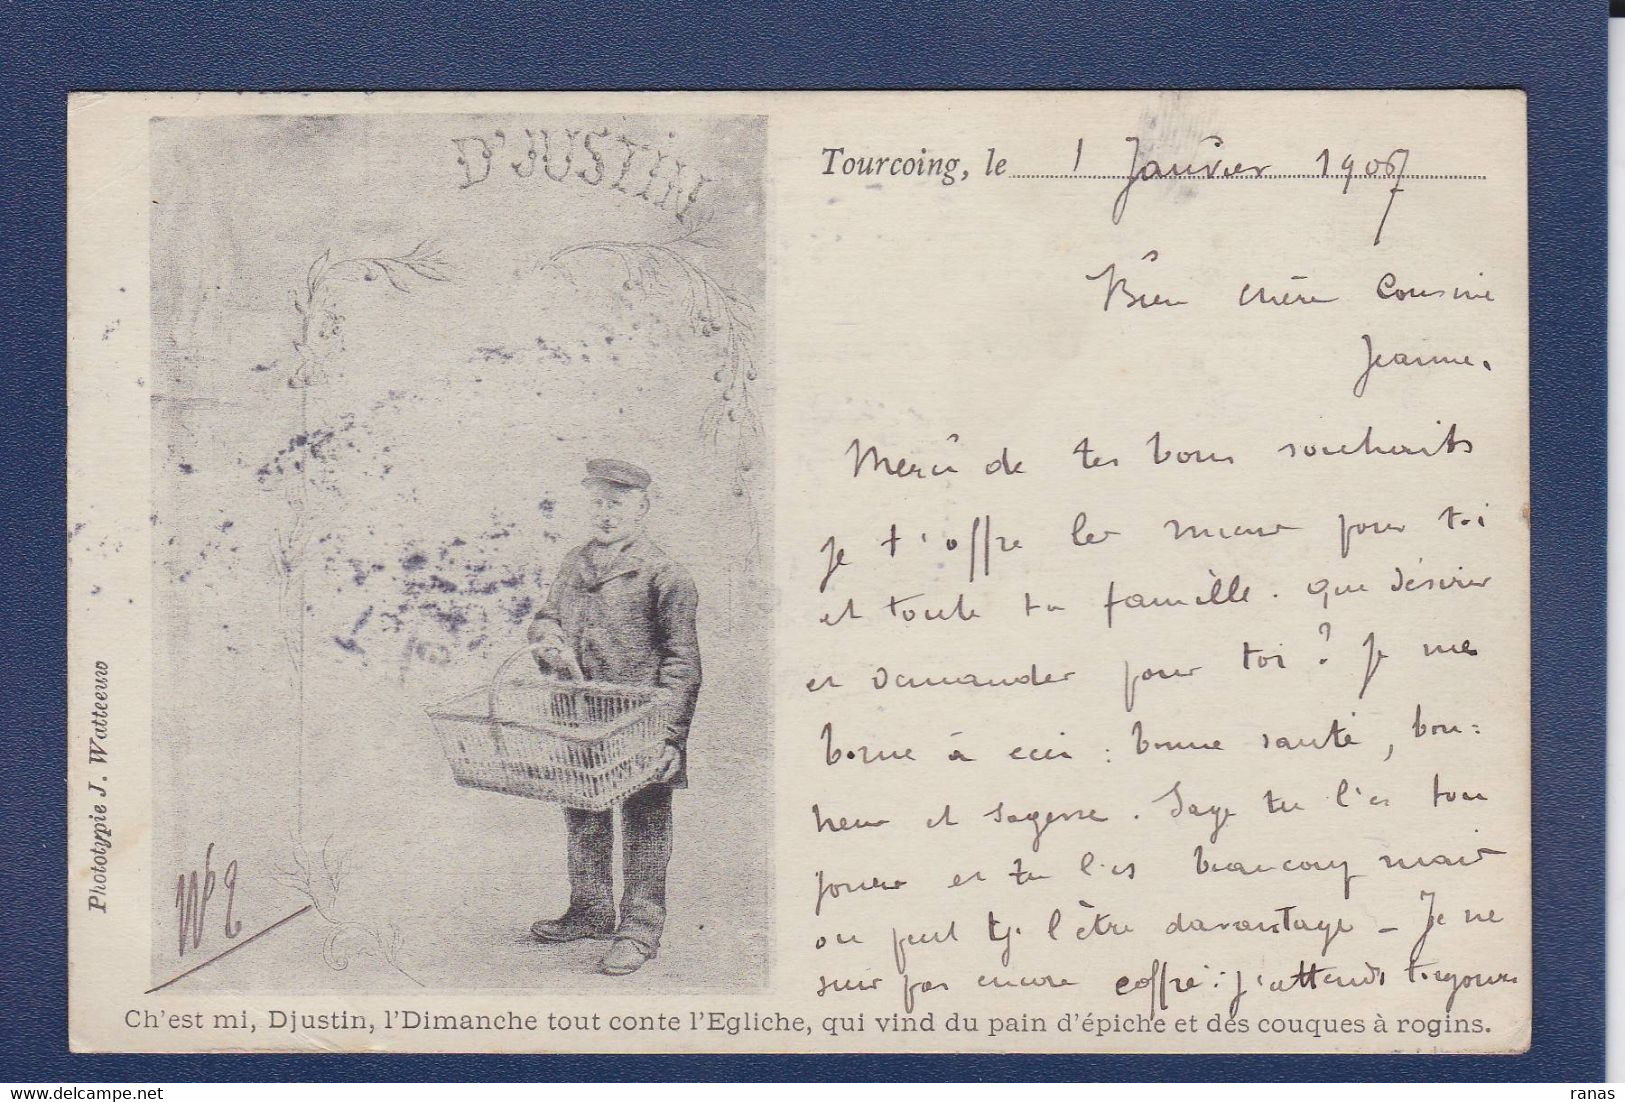 D'JUSTIN
Tourcoing, le 1 Janvier 1907
Bien chère Cousine
Jeanne.
Merci de tes bons souhaits
je t'offre les miens pour toi
et toute ta famille. Que désirer
et demander pour toi ? Je me
borne à ceci : bonne santé, bon=
heur et sagesse. Sage tu l'es tou
jours et tu l'es beaucoup mais
on peut tjs l'être davantage - Je ne
suis pas encore coffré : j'attends toujours
Phototypie J. Watteeuw
Ch'est mi, Djustin, l'Dimanche tout conte l'Egliche, qui vind du pain d'épiche et des couques à rogins.
ranas